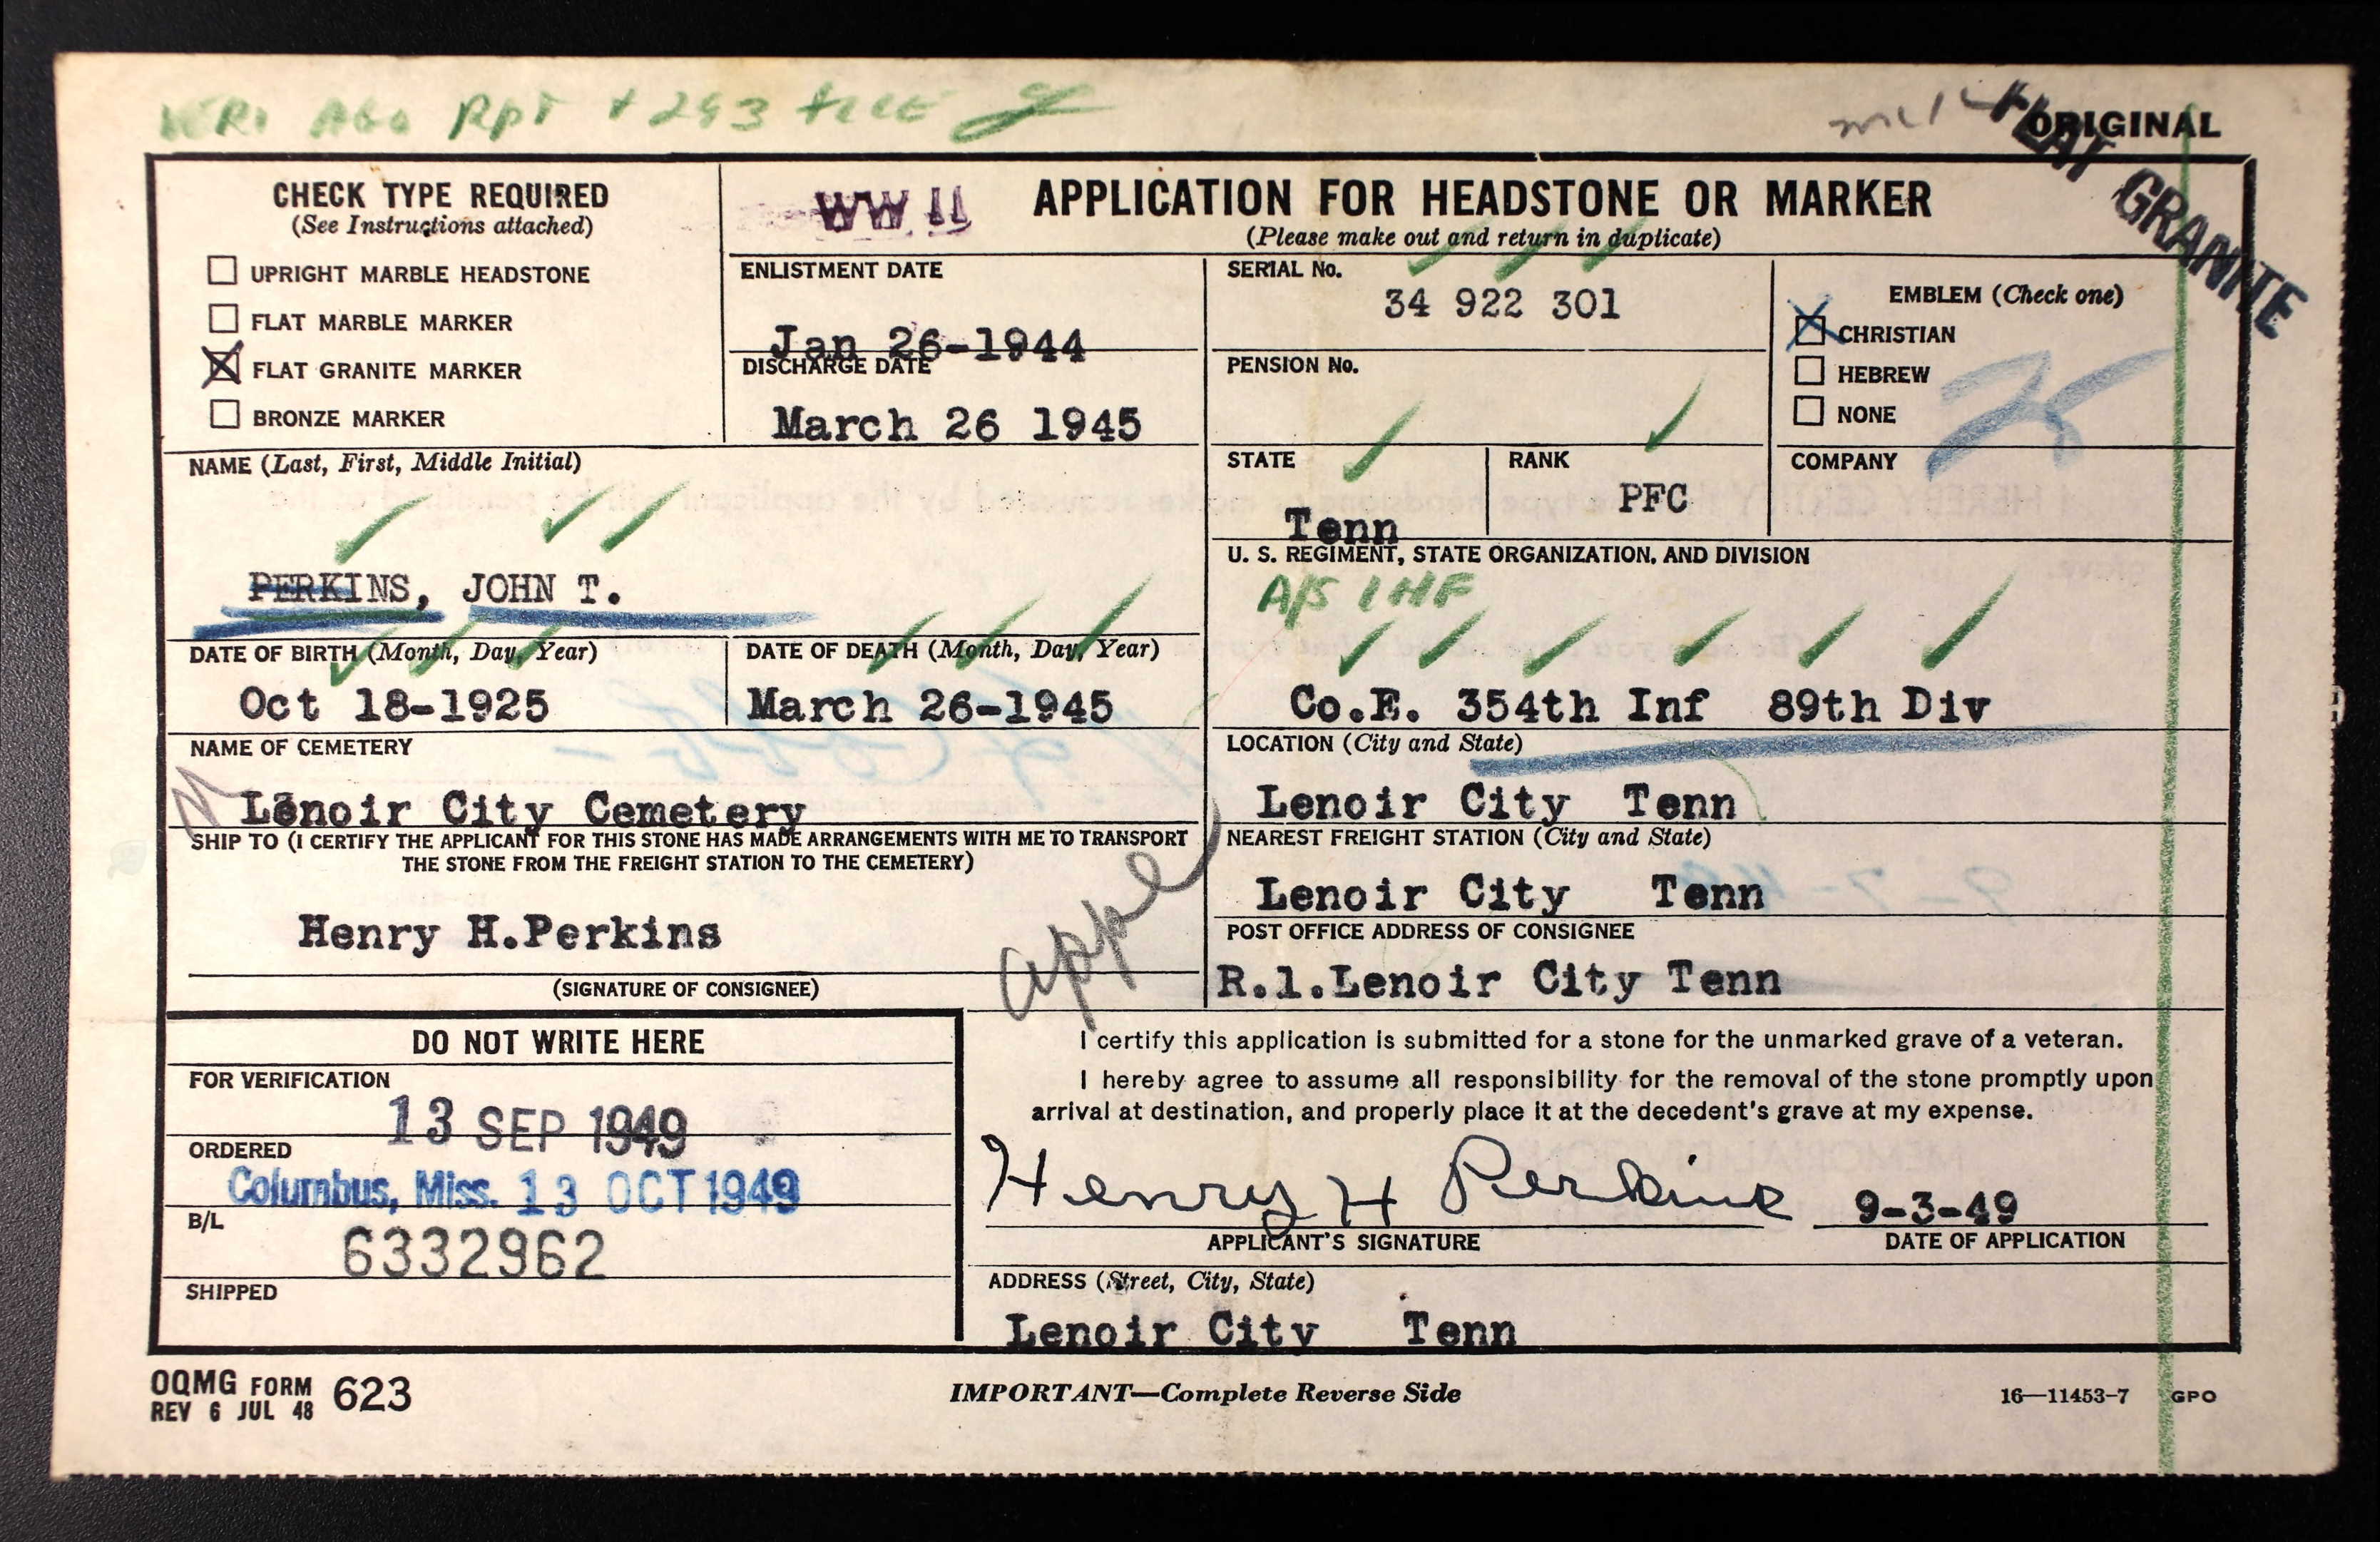 VERI AGO Rpt + 293 FILE
ORIGINAL
FLAT GRANITE
CHECK TYPE REQUIRED
(See Instructions attached)
UPRIGHT MARBLE HEADSTONE
FLAT MARBLE MARKER
FLAT GRANITE MARKER
BRONZE MARKER
WW II
APPLICATION FOR HEADSTONE OR MARKER
(Please make out and return in duplicate)
ENLISTMENT DATE
Jan 26-1944
DISCHARGE DATE
March 26 1945
SERIAL No.
34 922 301
PENSION No.
EMBLEM (Check one)
CHRISTIAN
HEBREW
NONE
NAME (Last, First, Middle Initial)
PERKINS, JOHN T.
STATE
Tenn
RANK
PFC
COMPANY
U. S. REGIMENT, STATE ORGANIZATION, AND DIVISION
A/S INF
Co.E. 354th Inf 89th Div
DATE OF BIRTH (Month, Day, Year)
Oct 18-1925
DATE OF DEATH (Month, Day, Year)
March 26-1945
NAME OF CEMETERY
Lenoir City Cemetery
LOCATION (City and State)
Lenoir City Tenn
SHIP TO (I CERTIFY THE APPLICANT FOR THIS STONE HAS MADE ARRANGEMENTS WITH ME TO TRANSPORT
THE STONE FROM THE FREIGHT STATION TO THE CEMETERY)
Henry H.Perkins
(SIGNATURE OF CONSIGNEE)
appl
NEAREST FREIGHT STATION (City and State)
Lenoir City Tenn
POST OFFICE ADDRESS OF CONSIGNEE
R.1.Lenoir City Tenn
DO NOT WRITE HERE
FOR VERIFICATION
13 SEP 1949
ORDERED
Columbus, Miss. 13 OCT 1949
B/L
6332962
SHIPPED
I certify this application is submitted for a stone for the unmarked grave of a veteran.
I hereby agree to assume all responsibility for the removal of the stone promptly upon
arrival at destination, and properly place it at the decedent's grave at my expense.
Henry H Perkins 9-3-49
APPLICANT'S SIGNATURE DATE OF APPLICATION
ADDRESS (Street, City, State)
Lenoir City Tenn
OQMG FORM 623
REV 6 JUL 48
IMPORTANT—Complete Reverse Side
16—11453-7 GPO